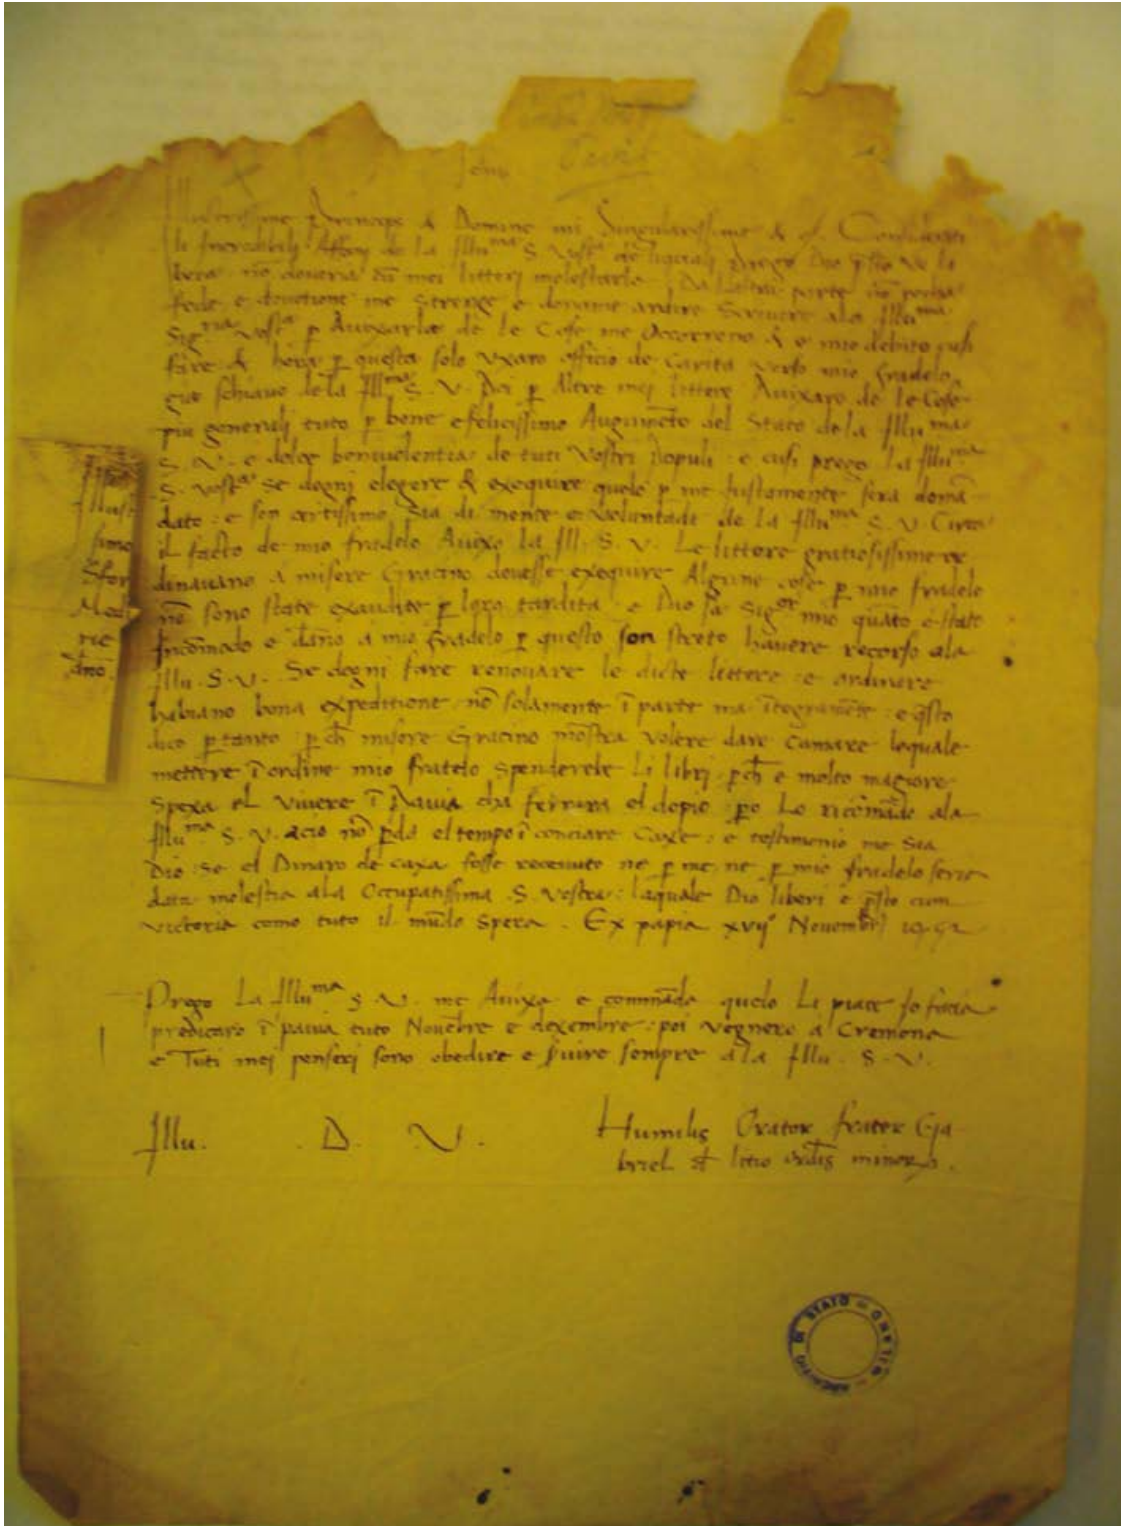 Jehus
Illustrissime princeps & Domine mi Singularissime & c. Considerati
li Incredibili affari de la Illu.ma S. Vostra de liquali prego Dio presto ve li
beri non doveria cum mei litteri molestarla. Da laltra parte
fede e devotione me strenge e doname ardire Scrivere ala Illu.ma
Sig.ria Vostra p Avixarla de le Cose me Occorreno & e mio debito cusi
fare & hora p questa solo Uxaro officio de Carita verso mio fradelo
gia schiavo de la Ill.ma S. V. Poi p Altre mei littere Avixaro de le Cose
piu generali tuto p bene e felicissimo Augmēto del Stato de la Illu.ma
S. V. e dolce benivolentia de tuti Vostri Populi e cusi prego La Illu.ma
S. Vostra Se degni elegere & exequire quelo p me Iustamente sera domā
dato e son certissimo sia di mente e voluntade de la Illu.ma S. V. Circa
il facto de mio fradelo Avixo La Ill. S. V. Le littere gratiosissime or
dinavano a misere Gracino dovesse exequire Algune cose p mio fradelo
nō sono state exaudite p loro tardita e Dio sa Sig.or mio quāto e stato
Incōmodo e dāno a mio fradelo p questo son streto havere recorso ala
Illu. S. V. Se degni fare renovare le dicte littere e ordinare
habiano bona expeditione nō solamente ī parte ma ītegramēte e q̄sto
dico p tanto p ch̄ misere Gracino mōstra volere dare Camare lequale
mettere ī ordine mio fratelo Spenderebe Li libri p ch̄ e molto magiore
Spexa el Vivere ī Pavia cha ferrara el dopio po Lo ricōmādo ala
Illu.ma S. V. acio nō pda el tempo ī conciare Caxe e testimonio me Sia
Dio Se el Dinaro de caxa fosse recevuto ne p me ne p mio fradelo seria
data molestia ala Occupatissima S. Vostra laquale Dio liberi e p̄sto cum
victoria como tuto il mūdo Spera. Ex papia xvij Novembri 1452
Prego La Illu.ma S. V. me Avixa e commāda quelo Li piace Io facia
predicaro ī pavia tuto Novēbre e dexembre poi vegnero a Cremona
e Tuti mei penseri sono obedire e s̄vire sempre a la Illu. S. V.
Illu. D. V.
Humilis Orator frater Ga
briel d̄ litio ordīs minor̄.
Illust
simo
Sfor
Medi
rie
dn̄o
ARCHIVIO DI STATO MILANO